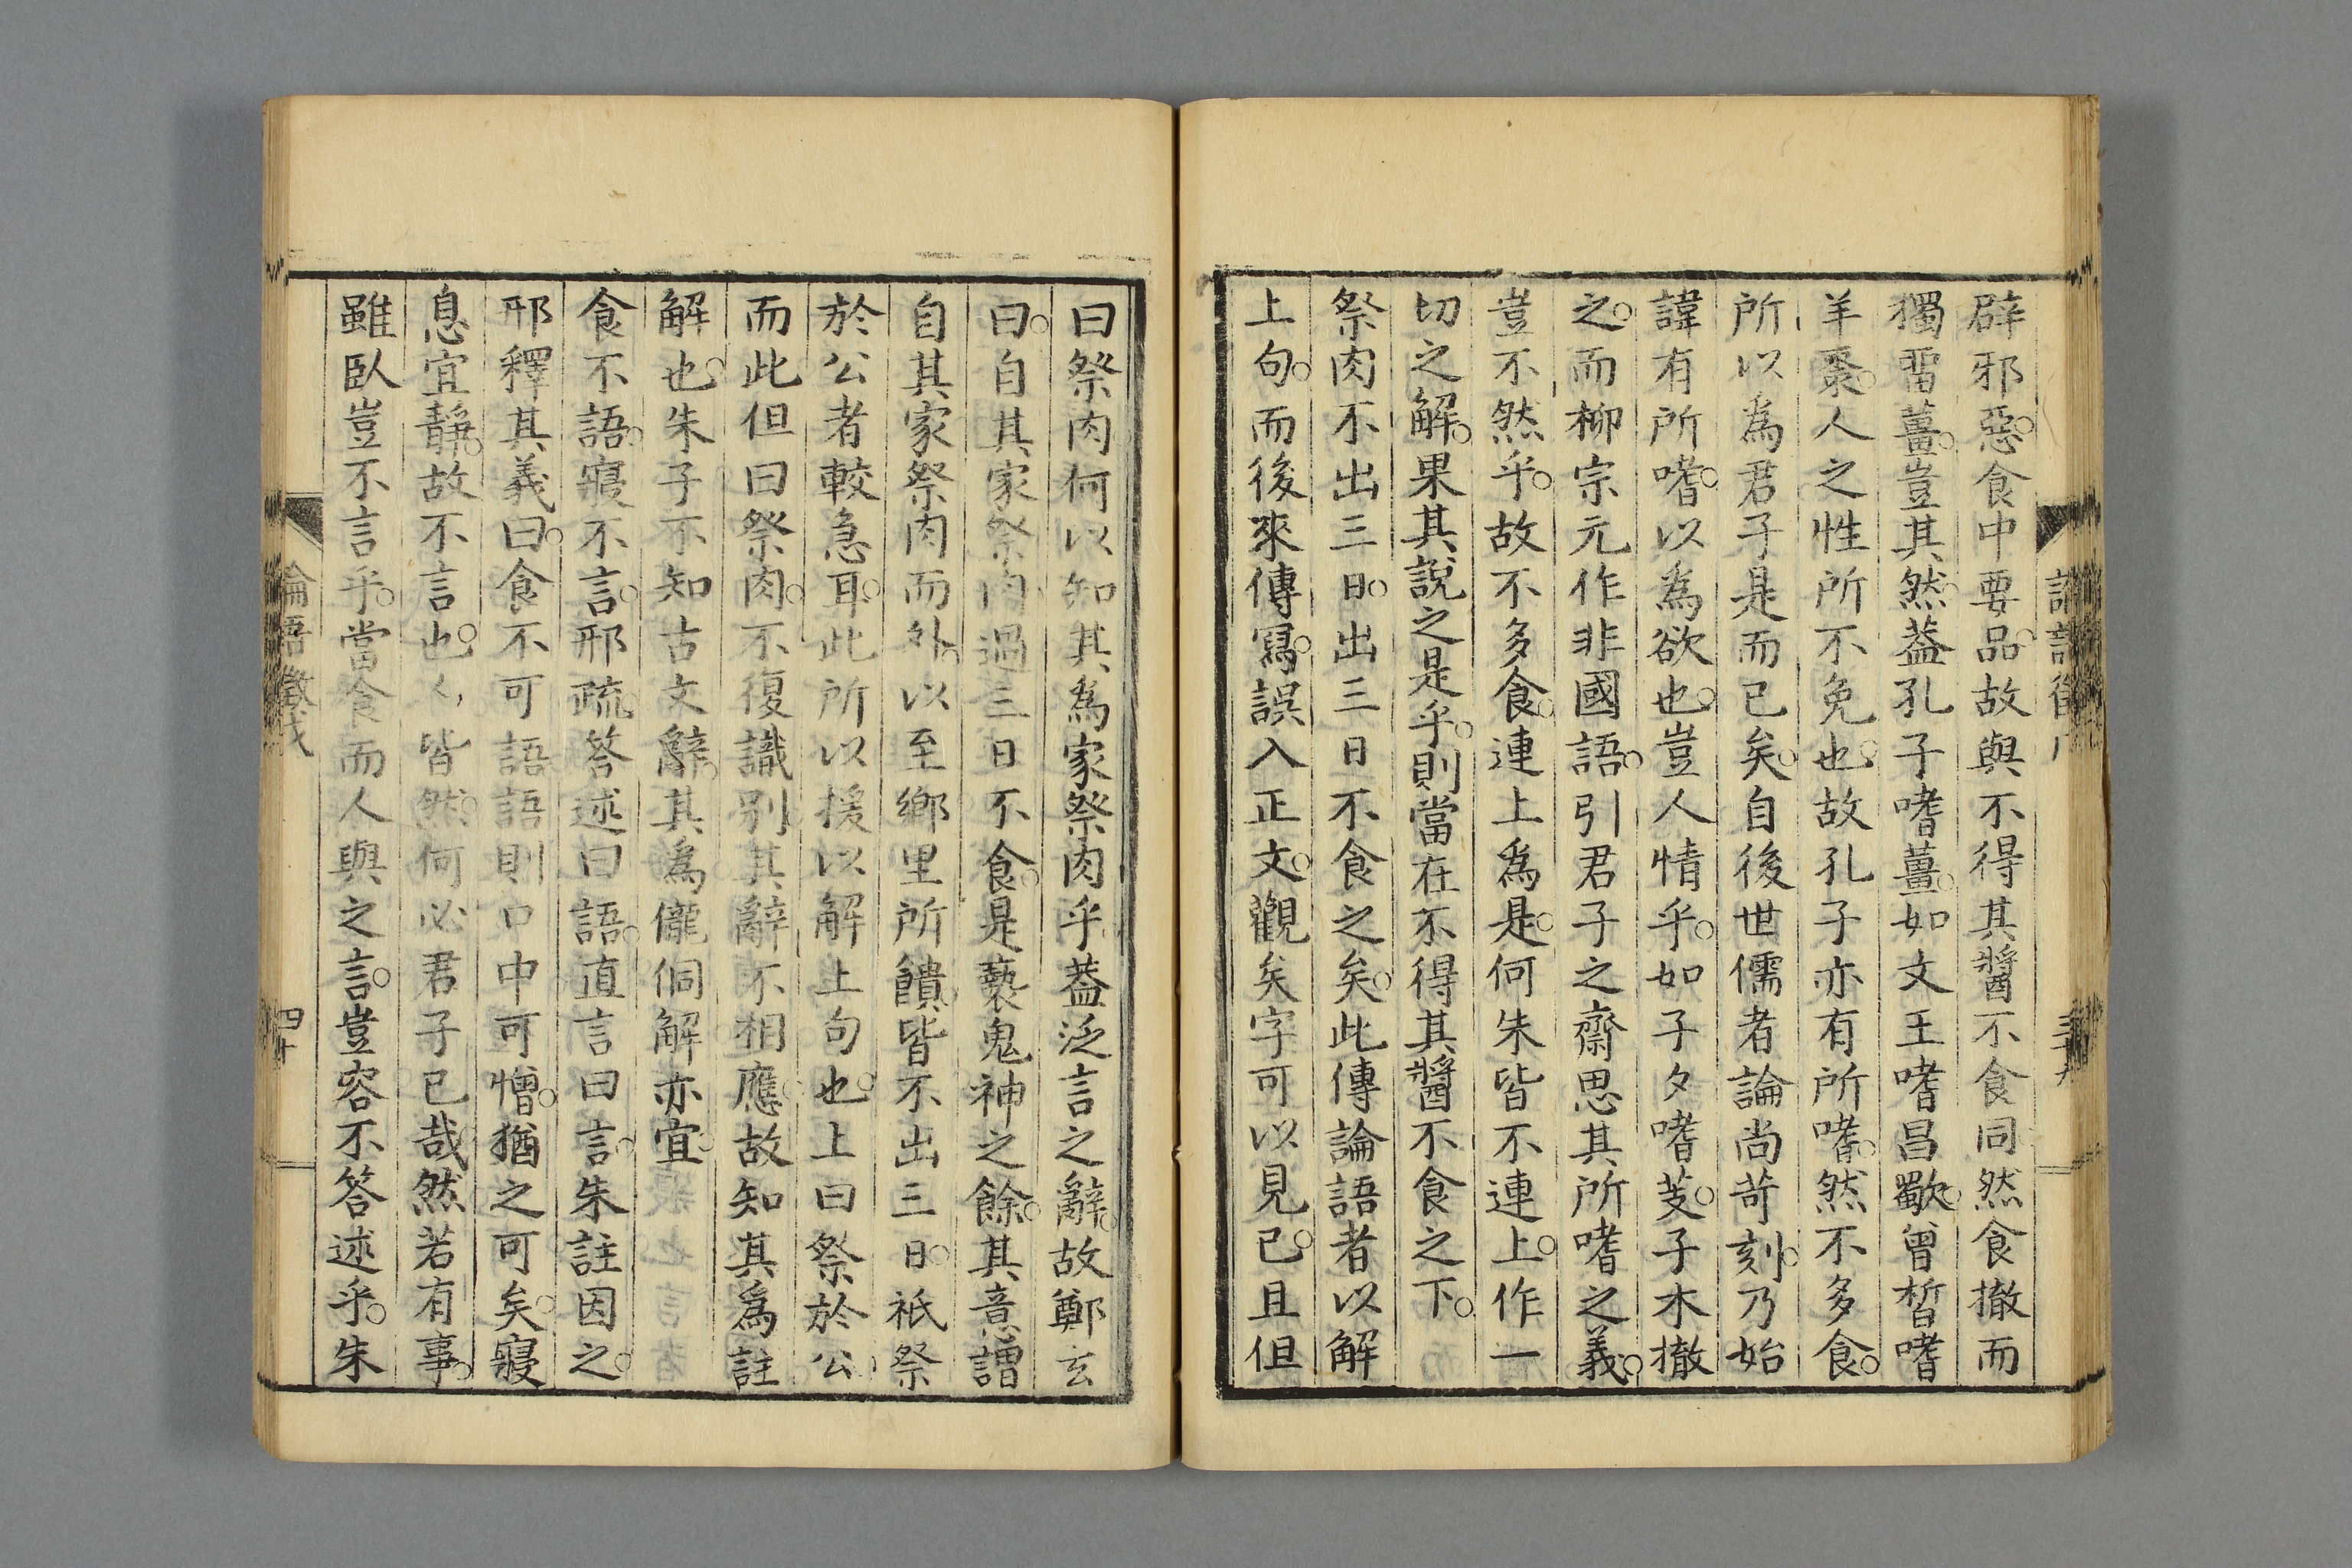 辟邪惡食中要品故與不得其醬不食同然食撤而
獨畱薑豈其然葢孔子嗜薑如文王嗜昌歜曾晳嗜
羊棗人之性所不免也故孔子亦有所嗜然不多食
所以為君子是而已矣自後世儒者論尚苛刻乃始
諱有所嗜以為欲也豈人情乎如子夕嗜芰子木撤
之而柳宗元作非國語引君子之齋思其所嗜之義
豈不然乎故不多食連上為是何朱皆不連上作一
切之解果其說之是乎則當在不得其醬不食之下
祭肉不出三日出三日不食之矣此傳論語者以解
上句而後來傳寫誤入正文觀矣字可以見已且但
曰祭肉何以知其為家祭肉乎葢泛言之辭故鄭玄
曰自其家祭肉過三日不食是褻鬼神之餘其意謂
自其家祭肉而外以至鄉里所饋皆不出三日祇祭
於公者較急耳此所以援以解上句也上曰祭於公
而此但曰祭肉不復識别其辭不相應故知其為註
解也朱子不知古文辭其為儱侗解亦宜
食不語寢不言邢疏答述曰語直言曰言朱註因之
邢釋其義曰食不可語語則口中可憎猶之可矣寢
息宜靜故不言也人皆然何必君子已哉然若有事
雖臥豈不言乎當食而人與之言豈容不答述乎朱
論語徵戊
四十